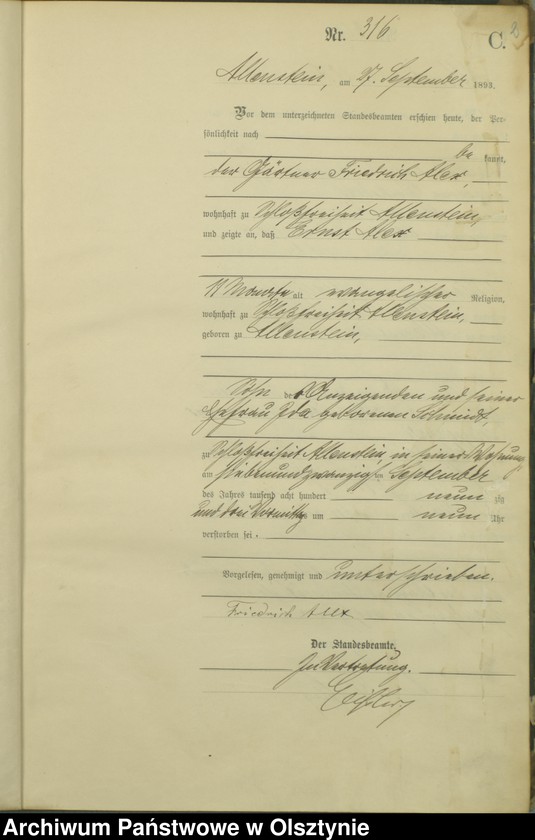 Nr. 316
C. 2
Allenstein, am 27. September 1893.
Vor dem unterzeichneten Standesbeamten erschien heute, der Per-
sönlichkeit nach
be kannt,
der Gärtner Friedrich Alex,
wohnhaft zu Schloßfreiheit Allenstein,
und zeigte an, daß Ernst Alex
11 Monate alt evangelischer Religion,
wohnhaft zu Schloßfreiheit Allenstein,
geboren zu Allenstein,
Sohn des Anzeigenden und seiner
Ehefrau Ida geborenen Schmidt,
zu Schloßfreiheit Allenstein, in seiner Wohnung
am siebenundzwanzigsten September
des Jahres tausend acht hundert neun zig
und drei Vormittags um neun Uhr
verstorben sei.
Vorgelesen, genehmigt und unterschrieben.
Friedrich Alex
Der Standesbeamte.
In Vertretung.
Archiwum Państwowe w Olsztynie